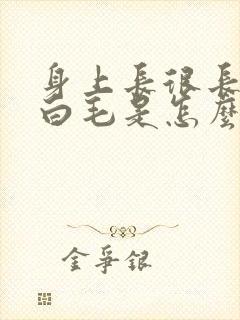 身上長很長
白毛是怎麼
金爭銀